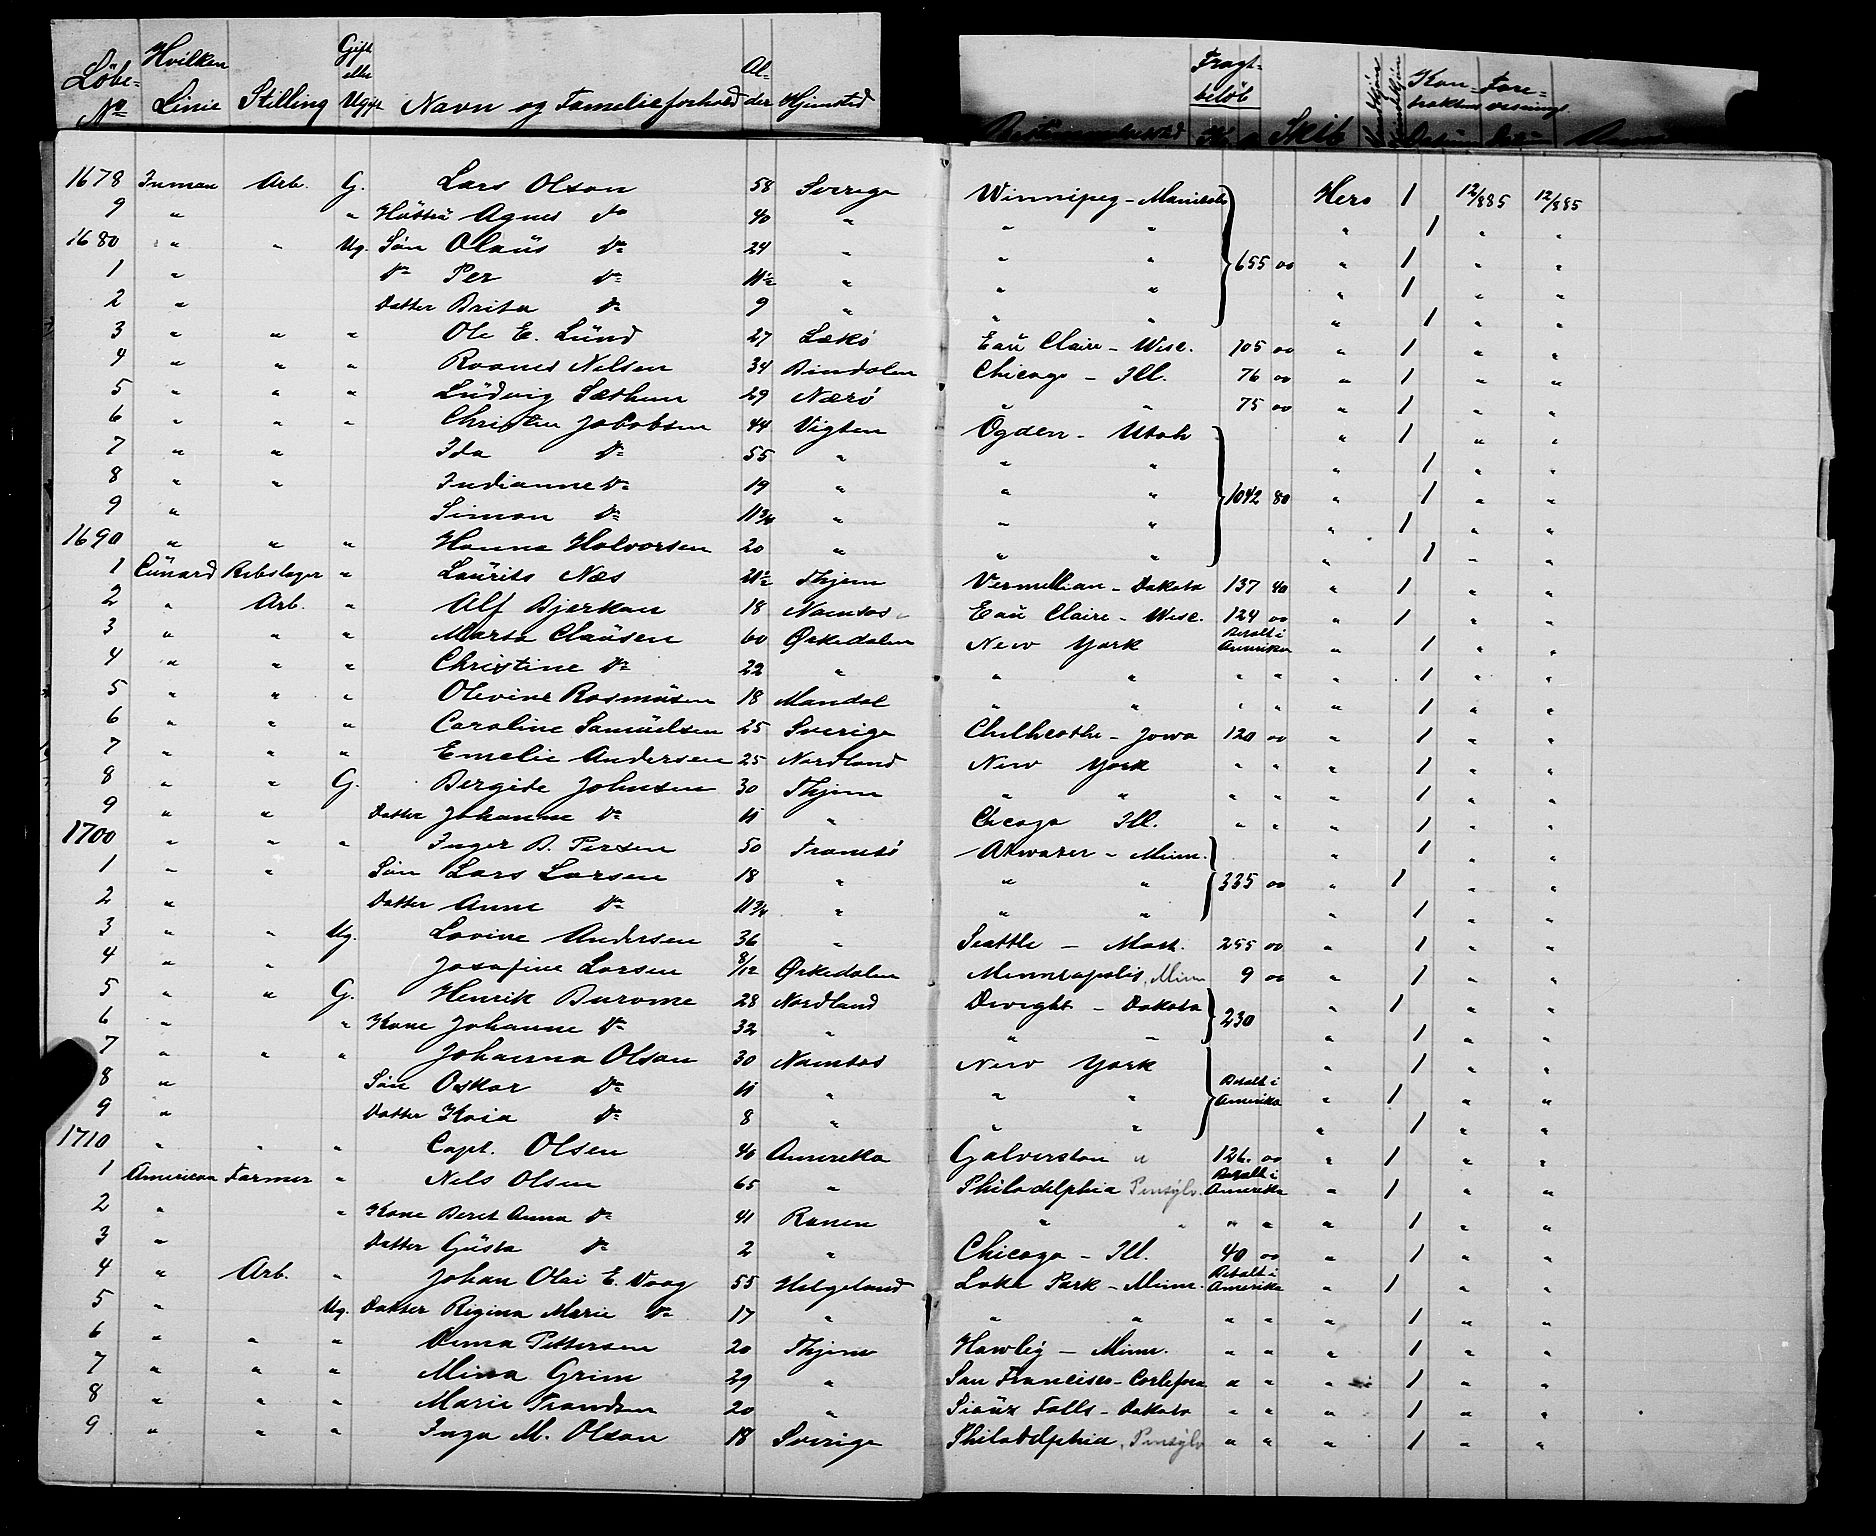 Löbe- No Hvilken Linie Stilling Gift eller Ugift Navn og Familieforhold Al- der Hjemsted Fragt- beløb Skib Kon- traktens Datum Fore- visnings
1678 Inman Arb. G. Lars Olson 58 Sverige Winnipeg - Manitoba Hero 1 12/885 12/885
9 " " Hustru Agnes do 40 " " " " 1 " "
1680 " " Ug. Søn Olaus do 24 " " " 655 00 " 1 " "
1 " do Per do 11½ " " " " 1 " "
2 " Datter Brita do 9 " " " " 1 " "
3 " " " Ole E. Lund 27 Lekø Eau Claire - Wisc. 105 00 " 1 " "
4 " " " Roones Nelsen 34 Bindalen Chicago - Ill. 76 00 " 1 " "
5 " " " Ludvig Sæthun 29 Nærø " " 75 00 " 1 " "
6 " " " Christen Jakobsen 44 Vigten Ogden - Utah " 1 " "
7 " " Ida do 55 " " " " 1 " "
8 " " Indianne do 19 " " " 1042 80 " 1 " "
9 " Simon do 11¾ " " " " 1 " "
1690 " " " Hanna Halvorsen 20 " " " " 1 " "
1 Cunard Rebslager " Laurits Næs 21½ Thjem Vermillian - Dakota 137 40 " 1 " "
2 " Arb. " Alf Bjerkan 18 Namsos Eau Claire - Wisc. 124 00 " 1 " "
3 " " " Marta Clausen 60 Ørkedalen New York Betalt i Amerika " 1 " "
4 " " " Christine do 22 " " " " " " 1 " "
5 " " " Olevine Rasmusen 18 Mandal " " " " " 1 " "
6 " " " Caroline Samuelsen 25 Sverige Chelheothe - Jowa 120 00 " 1 " "
7 " " " Emelie Andersen 25 Nordland New York " " " 1 " "
8 " " G. Bergide Johnsen 30 Thjem " " " " " 1 " "
9 " " Datter Johanne do 11 " Checago Ill. " " " 1 " "
1700 " " " Inger B. Persen 50 Tromsø Atwarer - Minn. " 1 " "
1 " " Søn Lars Larsen 18 " " " 335 00 " 1 " "
2 " Datter Anne do 11¾ " " " " 1 " "
3 " " Ug. Lovine Andersen 36 " Seattle - Wash. 255 00 " 1 " "
4 " " Josafine Larsen 8/12 Ørkedalen Minneapolis, Minn 9 00 " 1 " "
5 " " G. Henrik Burvme 28 Nordland Dwight - Dakota 230 " 1 " "
6 " " Kone Johanne do 32 " " " " 1 " "
7 " " " Johanna Olsen 30 Namsos New York " 1 " "
8 " Søn Oskar do 11 " " " Betalt i Amerika " 1 " "
9 " Datter Kaia do 8 " " " " 1 " "
1710 " " " Capt. Olsen 40 Amerika Galverston " 126. 00 " 1 " "
1 American Farmer " Nels Olsen 65 " Philadelphia Pensylv. Betalt i Amerika " 1 " "
2 " " Kone Beret Anna do 41 Ranen " " " " " 1 " "
3 " Datter Gusta do 2 " Chicago - Ill. 40 00 " 1 " "
4 " Arb. " Johan Olai E. Vaag 55 Helgeland Lake Park - Minn. Betalt i Amerika " 1 " "
5 " Ug. Datter Regina Marie do 17 " " " " " " 1 " "
6 " " " Anna Pettersen 20 Thjem Hawley - Minn. " " " 1 " "
7 " " " Mina Grim 29 " San Francisco - " " " 1 " "
8 " " " Marie Trondsen 20 " Sioux Falls - Dakota " " " 1 " "
9 " " " Inga M. Olsen 18 Sverige Philadelphia, Pensylv " " " 1 " "